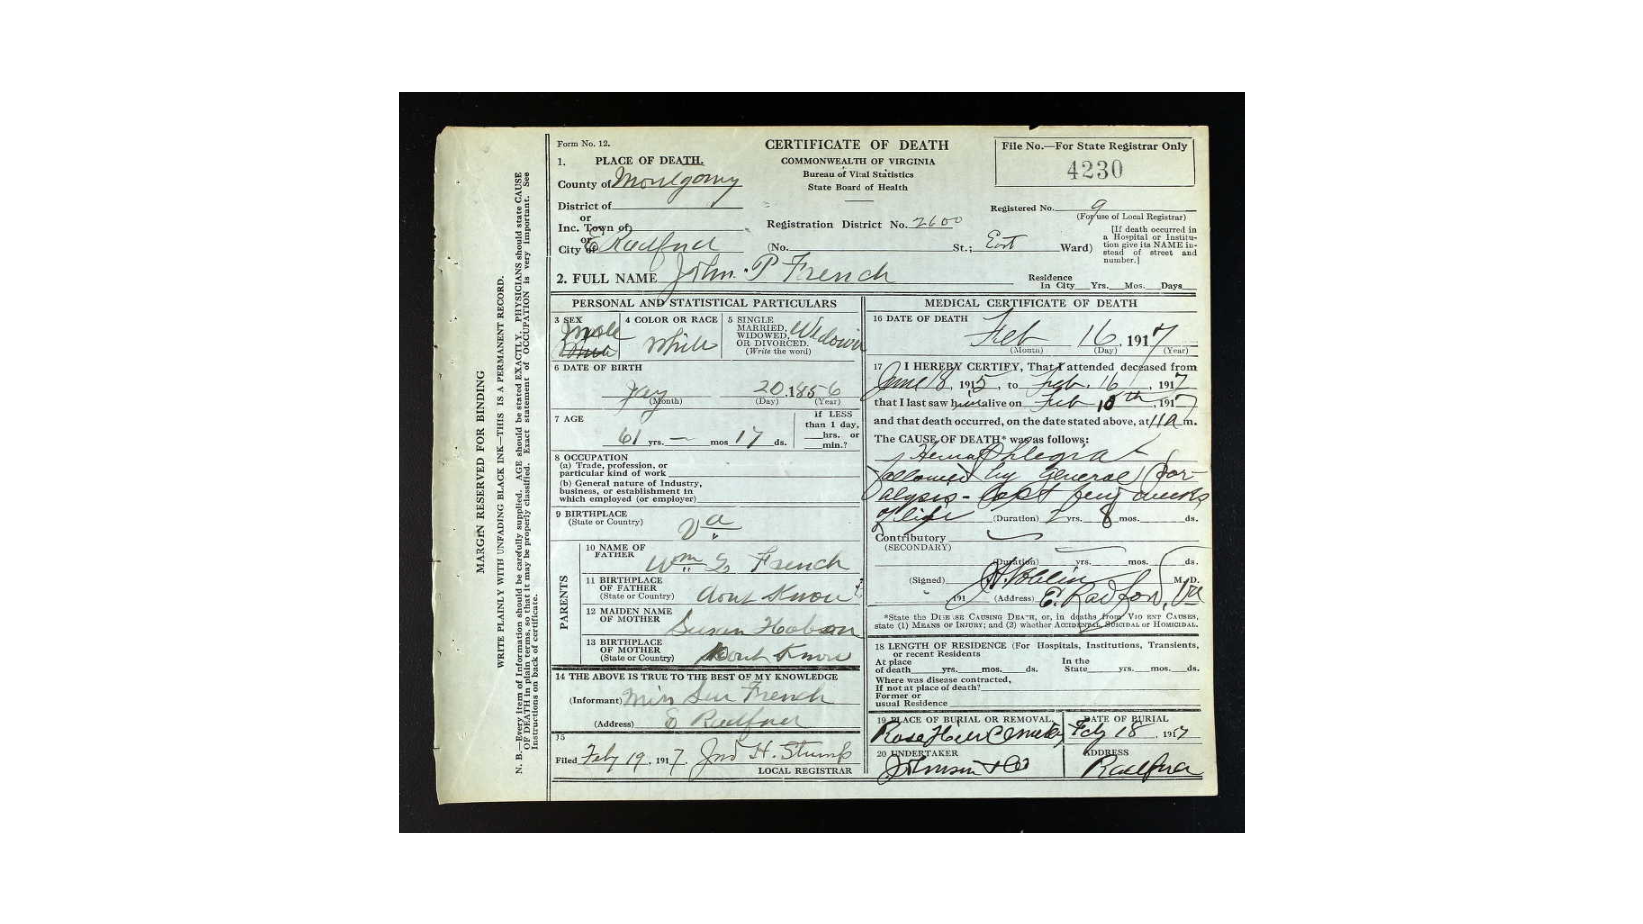 MARGIN RESERVED FOR BINDING
WRITE PLAINLY WITH UNFADING BLACK INK—THIS IS A PERMANENT RECORD.
N. B.—Every item of information should be carefully supplied. AGE should be stated EXACTLY. PHYSICIANS should state CAUSE
OF DEATH in plain terms, so that it may be properly classified. Exact statement of OCCUPATION is very important. See
instructions on back of certificate.
Form No. 12.
CERTIFICATE OF DEATH
COMMONWEALTH OF VIRGINIA
Bureau of Vital Statistics
State Board of Health
File No.—For State Registrar Only
4230
1. PLACE OF DEATH.
County of Montgomry
District of
or
Inc. Town of
or
City of E Radford
Registration District No. 2600
Registered No. 9
(For use of Local Registrar)
(No. St.; East Ward)
[If death occurred in
a Hospital or Institu-
tion give its NAME in-
stead of street and
number.]
2. FULL NAME John P French
Residence
In City Yrs. Mos. Days
PERSONAL AND STATISTICAL PARTICULARS
3 SEX
Male
4 COLOR OR RACE
White
5 SINGLE
MARRIED,
WIDOWED,
OR DIVORCED.
(Write the word)
6 DATE OF BIRTH
20, 1856
(Month) (Day) (Year)
7 AGE
61 yrs. — mos 17 ds.
If LESS
than 1 day,
hrs. or
min.?
8 OCCUPATION
(a) Trade, profession, or
particular kind of work
(b) General nature of Industry,
business, or establishment in
which employed (or employer)
9 BIRTHPLACE
(State or Country)
Va
PARENTS
10 NAME OF
FATHER
Wm French
11 BIRTHPLACE
OF FATHER
(State or Country)
dont Know
12 MAIDEN NAME
OF MOTHER
Susan Hobson
13 BIRTHPLACE
OF MOTHER
(State or Country)
Dont Know
14 THE ABOVE IS TRUE TO THE BEST OF MY KNOWLEDGE
(Informant) French
(Address) E Radford
15
Filed Feby 19, 1917. Jno H. Stump
LOCAL REGISTRAR
MEDICAL CERTIFICATE OF DEATH
16 DATE OF DEATH
Feb 16, 1917
(Month) (Day) (Year)
17 I HEREBY CERTIFY, That I attended deceased from
June 18, 1915, to Feb. 16, 1917
that I last saw him alive on Feb 1917
and that death occurred, on the date stated above, at 11 a m.
The CAUSE OF DEATH* was as follows:
followed by General Par-
alysis -
of life (Duration) 2 yrs. 8 mos. ds.
Contributory
(SECONDARY)
(Duration) yrs. mos. ds.
(Signed) M. D.
191 (Address) E. Radford, Va
*State the DISEASE CAUSING DEATH, or, in deaths from VIOLENT CAUSES,
state (1) MEANS OF INJURY; and (2) whether ACCIDENTAL, SUICIDAL or HOMICIDAL.
18 LENGTH OF RESIDENCE (For Hospitals, Institutions, Transients,
or recent Residents
At place In the
of death yrs. mos. ds. State yrs. mos. ds.
Where was disease contracted,
If not at place of death?
Former or
usual Residence
19 PLACE OF BURIAL OR REMOVAL. DATE OF BURIAL
Feby 18, 1917
20 UNDERTAKER ADDRESS
Johnson & Co Radford